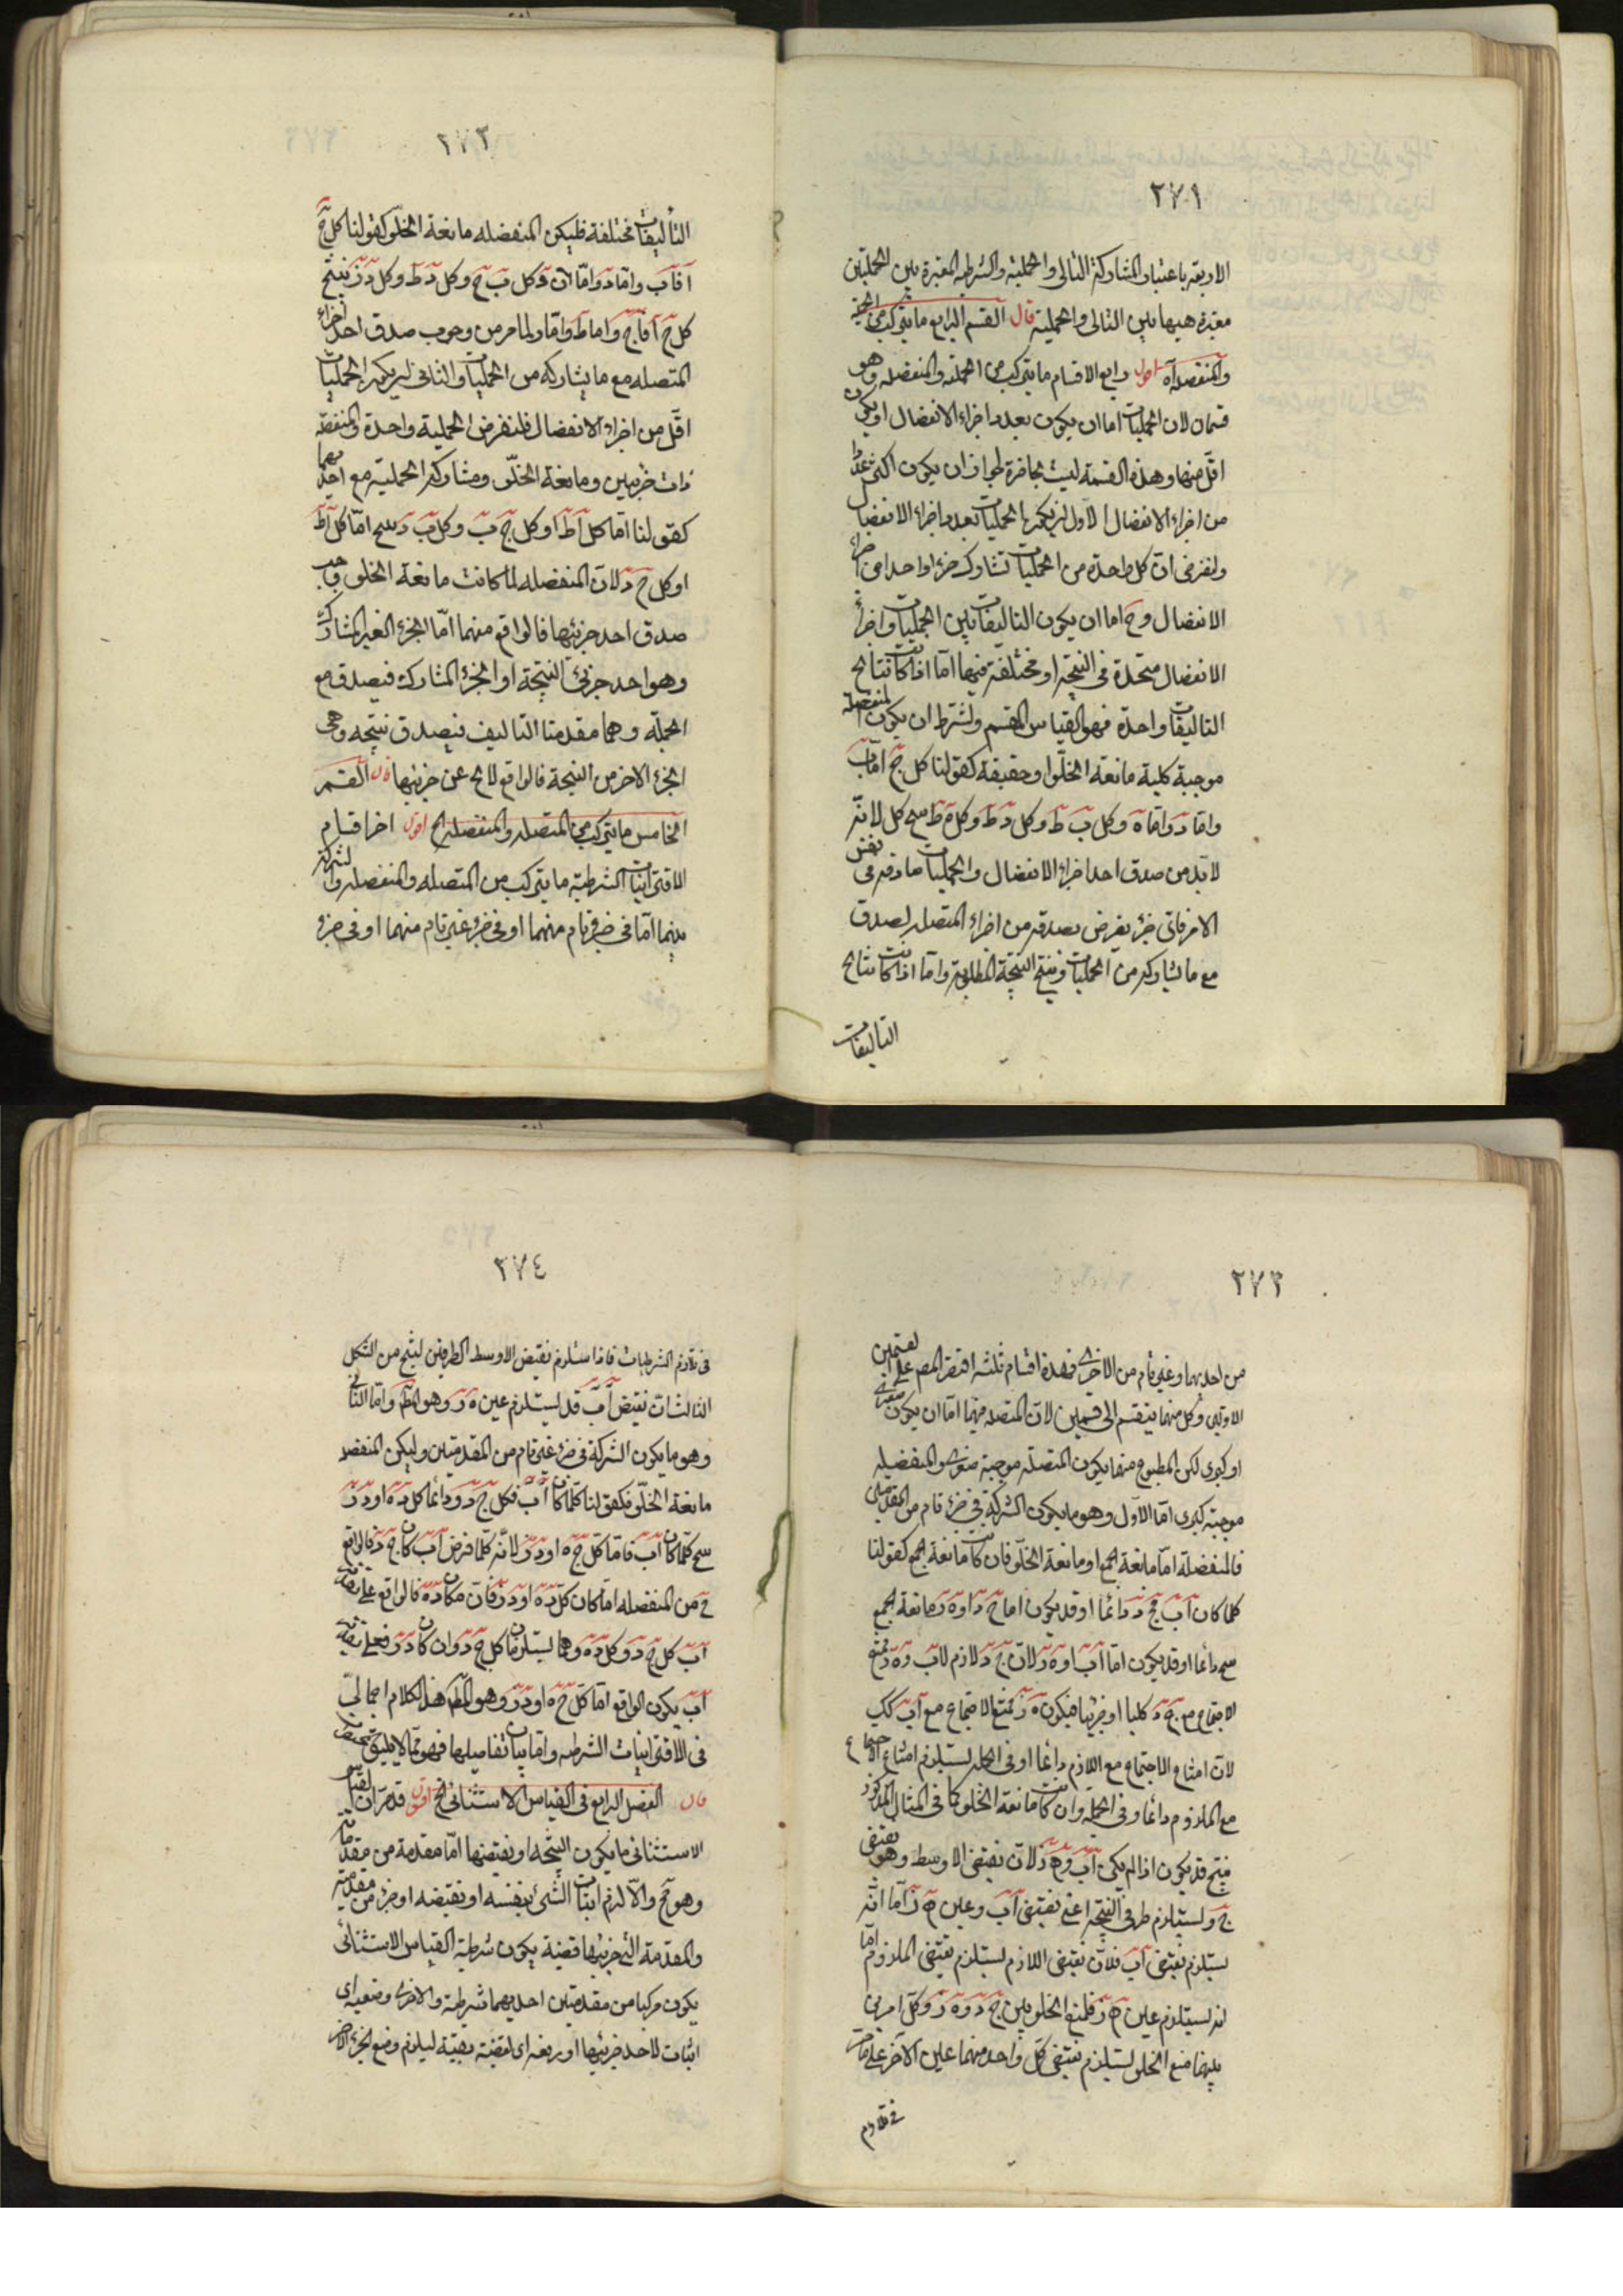 ٢٧١
الاربعة باعتبار المشاركة التالى والحملية والشرطية المعتبرة بين الحمليتين
معتبرة هيهنا بين التالى والحملية قال القسم الرابع ما يتركب من الحملية
والمنفصلة آه اقول رابع الاقسام ما يتركب من الحملية والمنفصلة وهو
قسمان لان الحمليات اما ان يكون بعدد اجزاء الانفصال او يكون
اقل منها وهذه القسمة ليست بحاصرة لجواز ان يكون اكثر عددا
من اجزاء الانفصال الاول ان يكون الحمليات بعدد اجزاء الانفصال
ولنفرض ان كل واحدة من الحمليات تشارك جزءا واحدا من اجزاء
الانفصال وح اما ان يكون التاليفات بين الحمليات واجزاء
الانفصال متحدة فى النتيجة او مختلفة فيها اما اذا كانت نتائج
التاليفات واحدة فهو القياس المقسم ويشترط ان يكون المنفصلة
موجبة كلية مانعة الخلو او حقيقية كقولنا كل ج اما ب
واما د واما ه وكل ب ط وكل د ط وكل ه ط ينتج كل لانه
لابد من صدق احد اجزاء الانفصال والحمليات صادقة فى نفس
الامر فاى جزء يفرض صدقه من اجزاء المتصلة يصدق
مع ما يشاركه من الحمليات وينتج النتيجة المطلوبة واما اذا كانت نتائج
التاليفات
٢٧٢
التأليفات مختلفة فليكن المنفصلة مانعة الخلو كقولنا كل ج
اما ب واما د واما ه وكل ب ج وكل د ط وكل ه ز ينتج
كل ج اما ج واما ط واما ز لما مر من وجوب صدق احد اجزاء
المتصله مع ما يشاركه من الحمليات والثانى ان يكون الحمليات
اقل من اجزاء الانفصال فلنفرض الحملية واحدة والمنفصلة
ذات جزئين ومانعة الخلو ومشاركة الحملية مع احدهما
كقولنا اما كل ا ط او كل ج ب وكل ب د ينتج اما كل ا ط
او كل ج د لان المنفصله لما كانت مانعة الخلو وجب
صدق احد جزئيها فالواقع منهما اما الجزء الغير المشارك
وهو احد جزئى النتيجة او الجزء المشارك فيصدق مع
الحملية وهما مقدمتا التاليف فيصدق نتيجته وهى
الجزء الاخر من النتيجة فالواقع لا يخ عن جزئيها قال القسم
الخامس ما يتركب من المتصله والمنفصله الخ اقول اخر اقسام
الاقترانيات الشرطية ما يتركب من المتصله والمنفصله والشركة
بينهما اما فى جزء تام منهما او فى جزء غير تام منهما او فى جزء
٢٧٣
من احديهما وغير تام من الاخرى فهذه اقسام ثلثه اقتصر المصر على القسمين
الاولين وكل منهما ينقسم الى قسمين لان المتصله فيهما اما ان يكون صغرى
او كبرى لكن المطبوع منهما يكون المتصله موجبة صغرى والمنفصله
موجبة كبرى اما الاول وهو ما يكون الشركة فى جزء تام من المقدمتين
فالمنفصلة اما مانعة الجمع او مانعة الخلو فان كانت مانعة الجمع كقولنا
كلما كان ا ب فج د دائما او قد يكون اما ج د او ه ز مانعة الجمع
ينتج دائما او قد يكون اما ا ب او ه ز لان ج د لازم لاب و ه ز ممتنع
الاجتماع مع ج د كليا او جزئيا فيكون ه ز ممتنع الاجتماع مع ا ب كك
لان امتناع الاجتماع مع اللازم دائما او فى الجملة يستلزم امتناع الاجتماع
مع الملزوم دائما وفى الجملة وان كانت مانعة الخلو كما فى المثال المذكور
ينتج قد يكون اذا لم يكن ا ب فه ز لان نقيض الاوسط وهو نقيض
ج د يستلزم طرفى النتيجة اعنى نقيض ا ب وعين ه ز اما انه
يستلزم نقيض ا ب فلان نقيض اللازم يستلزم نقيض الملزوم واما
انه يستلزم عين ه ز فلمنع الخلو بين ج د و ه ز وكل امرين
بينهما منع الخلو يستلزم نقيض كل واحد منهما عين الاخر على ما مر
فى تلازم
٢٧٤
فى تلازم الشرطيات فاذا استلزم نقيض الاوسط الطرفين لينتج من الشكل
الثالث ان نقيض ا ب قد يستلزم عين ه ز وهو المط واما الثانى
وهو ما يكون الشركة فى جزء غير تام من المقدمتين وليكن المنفصله
مانعة الخلو فكقولنا كلما كان ا ب فكل ج د ودائما كل د ه او د ز
ينتج كلما كان ا ب فاما كل ج ه او د ز لانه كلما فرض ا ب كان ج د فالواقع
ح من المنفصله اما كان كل د ه او د ز فان كان د ه فالواقع على تقدير
ا ب كل ج د وكل د ه وهما يستلزمان كل ج ه وان كان د ز فعلى تقدير
ا ب يكون الواقع اما كل ج ه او د ز وهو المط هذا الكلام اجمالى
فى الاقترانيات الشرطيه واما بيان تفاصيلها فهو مما لا يليق بالمختصرات
قال الفصل الرابع فى القياس الاستثنائى الخ اقول قد مر ان القياس
الاستثنائى ما يكون النتيجه او نقيضها اما مقدمة من مقدماته
وهو مح والا لزم اثبات الشئ بنفسه او نقيضه او جزء من مقدمته
والمقدمة التى جزئيها قضية يكون شرطية القياس الاستثنائى
يكون مركبا من مقدمتين احديهما شرطية والاخرى وضعية اى
اثبات لاحد جزئيها او رفعه اى نقيضه بقية ليلزم وضع الجزء الاخر